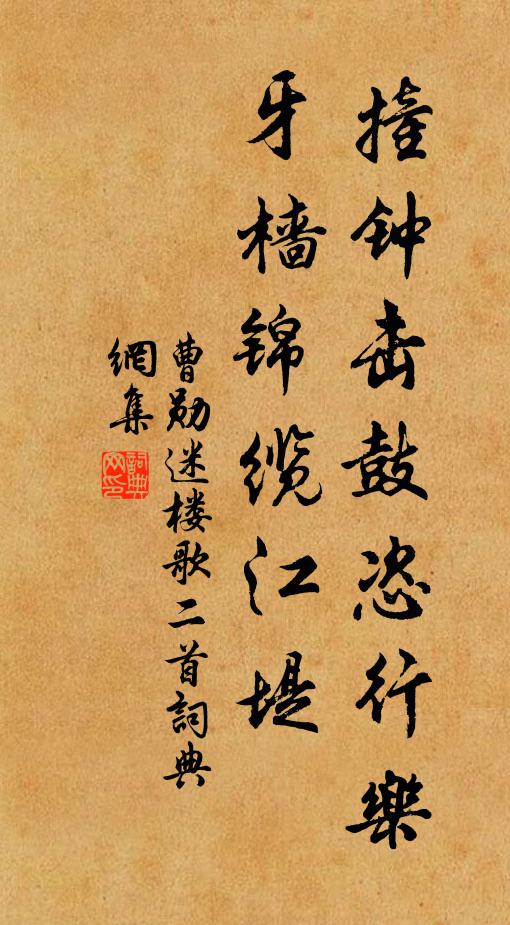 撞钟击鼓恣行樂
牙樯锦缆江堤
曹勋迷楼歌二首詞典
網集
詞典
网印